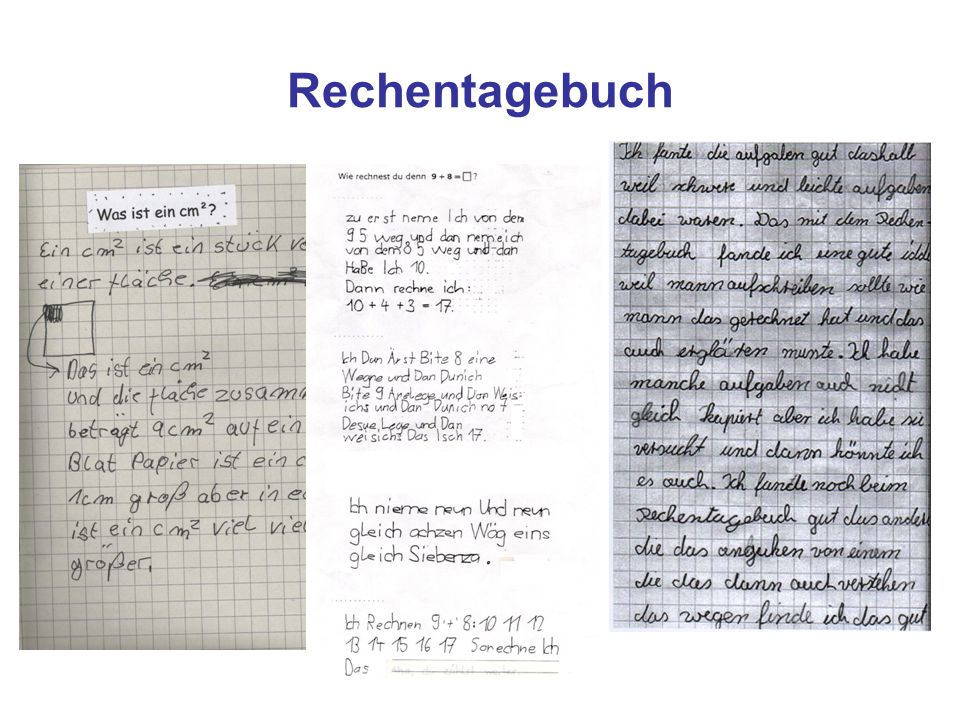 Rechentagebuch
Was ist ein cm²?
Ein cm² ist ein stück
einer fläche.
Das ist ein cm²
und die fläche zusam
beträgt 9cm² auf ein
Blat Papier ist ein
1cm groß aber in
ist ein cm² viel
größer.
Wie rechnest du denn 9 + 8 = □ ?
zu erst neme Ich von dem
9 5 weg und dan nemeich
von dem 8 5 weg und dan
HaBe Ich 10.
Dann rechne ich:
10 + 4 + 3 = 17.
Ich Dun Ärst Bite 8 eine
Wegne und Dan Dunich
Bite 9 Anelege und Dan Weis
ichs und Dan Dunich no 7
Desue Lege und Dan
weisichs Das Isch 17.
Ich nieme neun Und neun
gleich achzen Wäg eins
gleich Siebenza.
Ich Rechnen 9 + 8: 10 11 12
13 14 15 16 17 So rechne Ich
Das
Aha, du zählst weiter.
Ich fante die aufgaben gut dashalb
weil schwere und leichte aufgaben
dabei waren. Das mit dem Rechen-
tagebuch fande ich eine gute idde
weil mann aufschreiben sollte wie
mann das gerechnet hat und das
auch erglären munte. Ich habe
manche aufgaben auch nicht
gleich kupiert aber ich habe sie
versucht und dann könnte ich
es auch. Ich fande noch beim
Rechentagebuch gut das andere
die das anguken von einem
die das dann auch verstehen
das wegen finde ich das gut